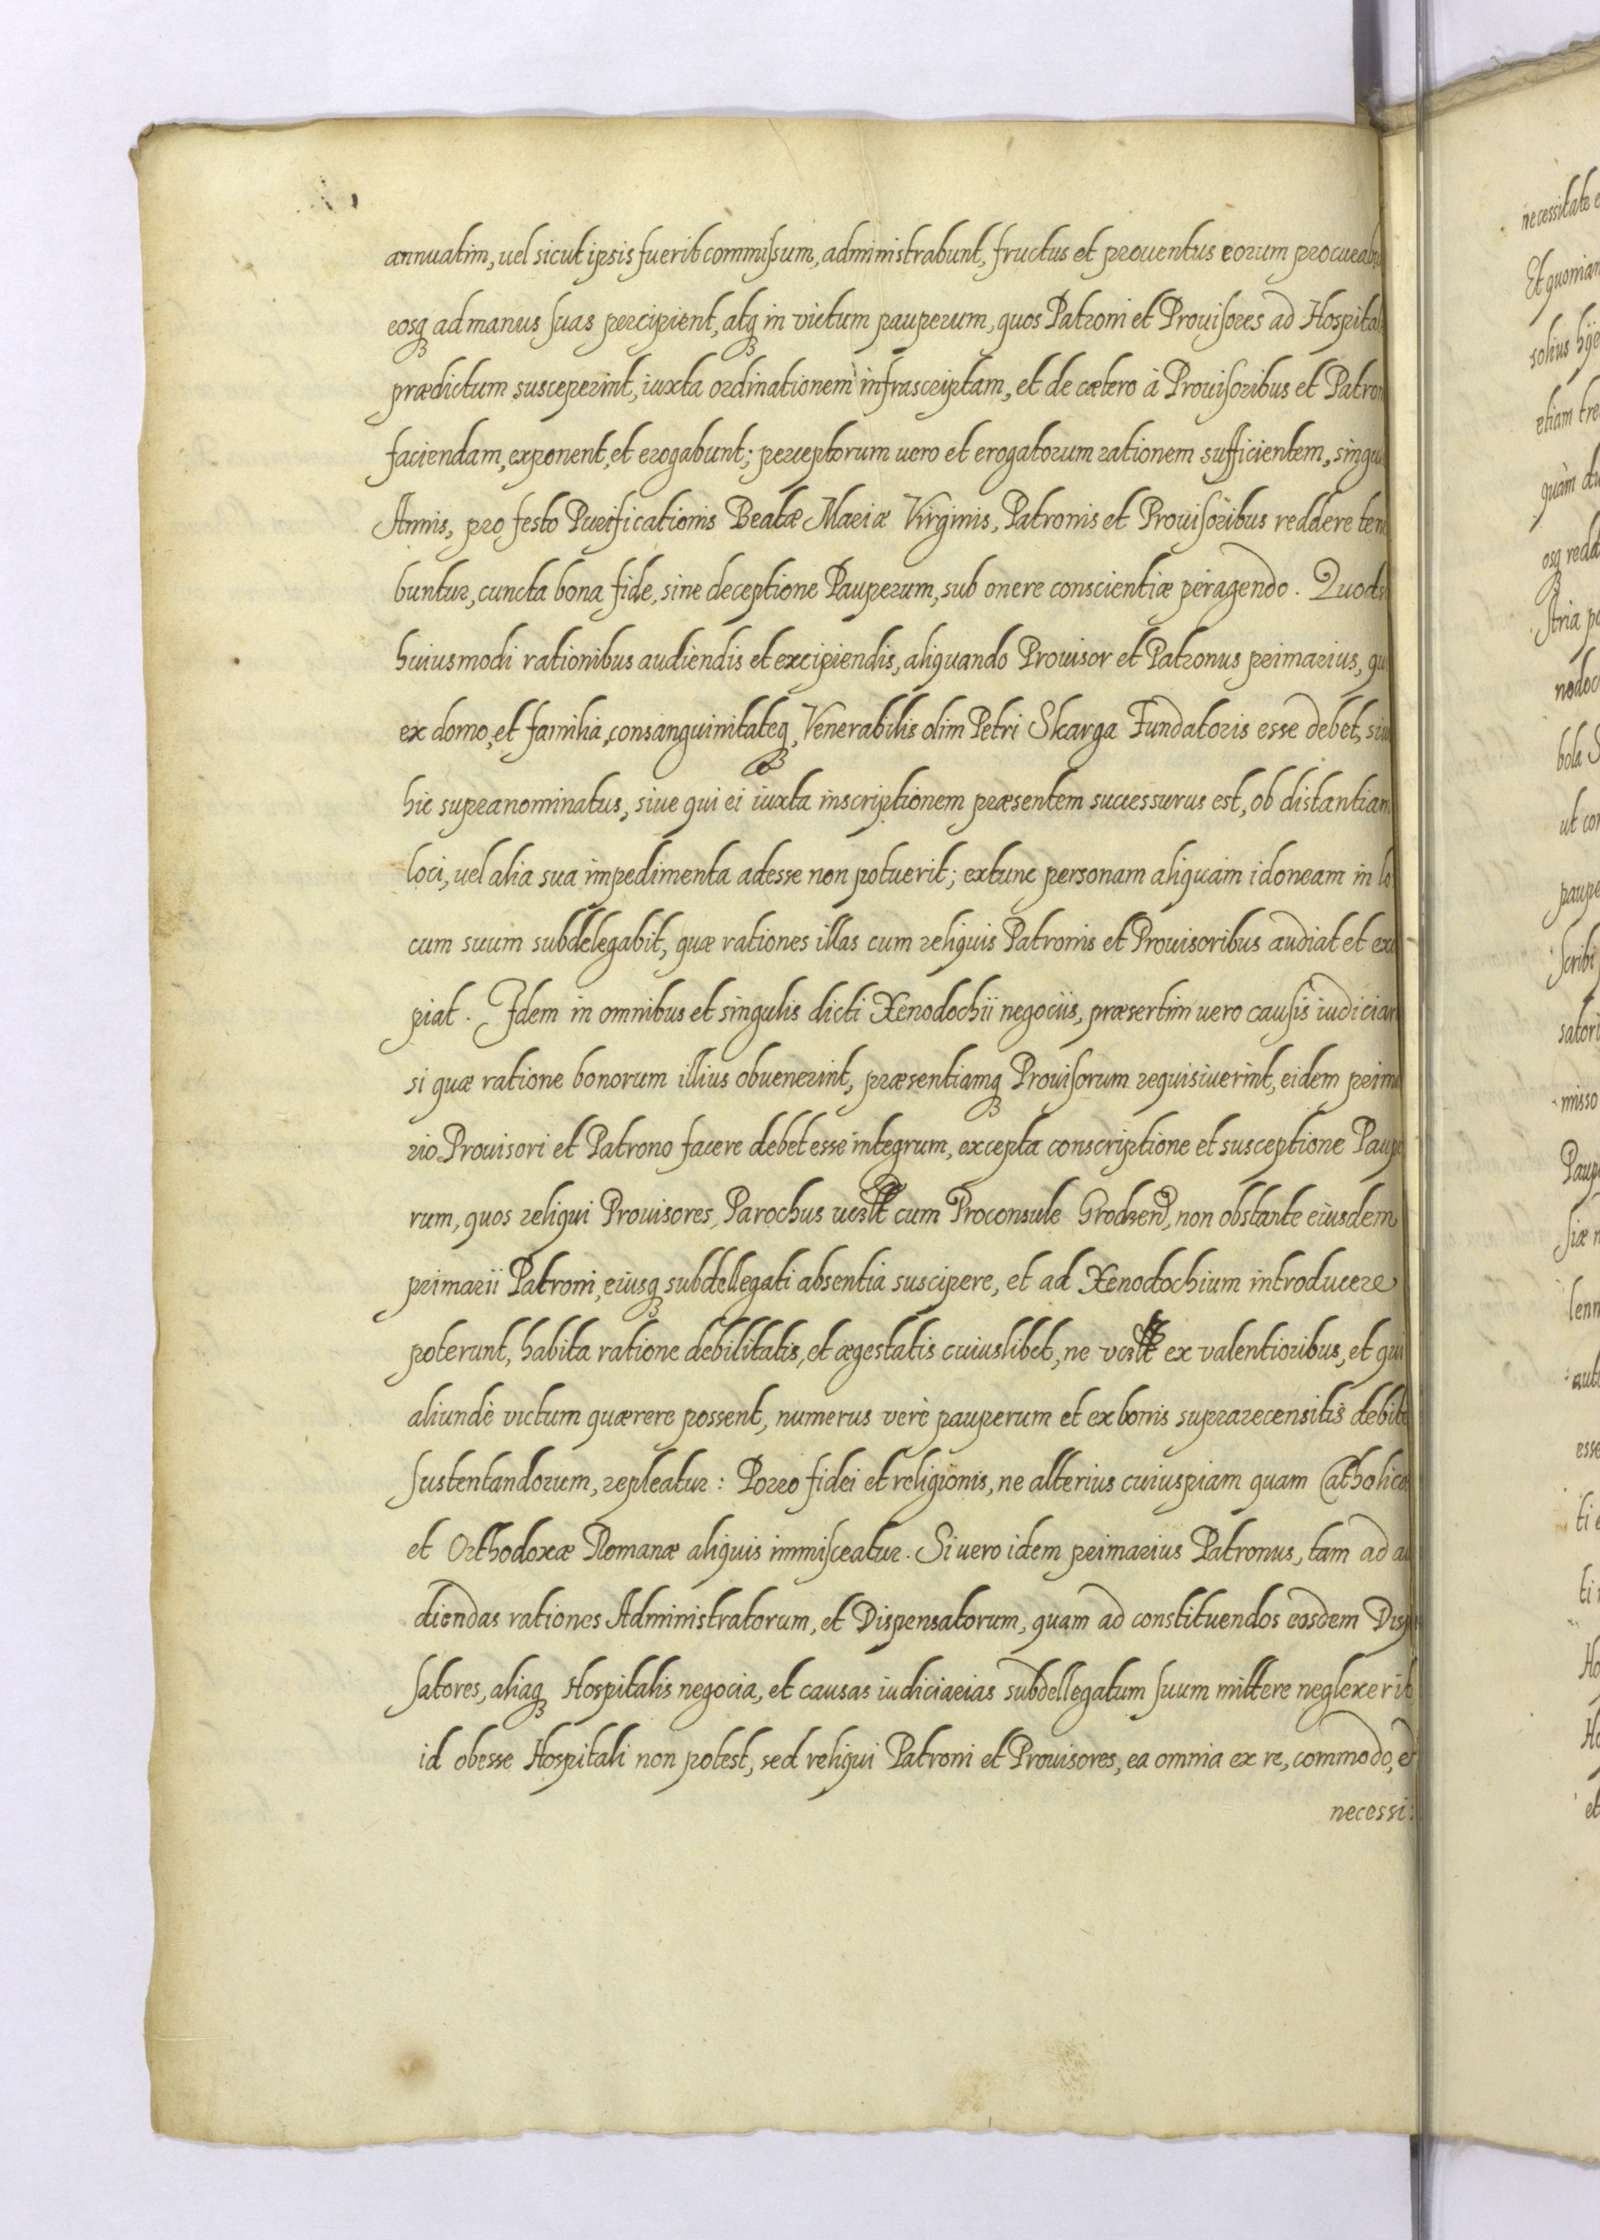 annuatim, uel sicut ipsis fuerit commissum, administrabunt, fructus et prouentus eorum procurab
eosq₃ ad manus suas percipient, atq₃ in victum pauperum, quos Patroni et Prouisores ad Hospital
prædictum susceperint, iuxta ordinationem infrascriptam, et de cætero à Prouisoribus et Patron
faciendam, exponent, et erogabunt; perceptorum uero et erogatorum rationem sufficientem, singu
Annis, pro festo Purificationis Beatæ Mariæ Virginis, Patronis et Prouisoribus reddere ten
buntur, cuncta bona fide, sine deceptione Pauperum, sub onere conscientiæ peragendo. Quods
huiusmodi rationibus audiendis et excipiendis, aliquando Prouisor et Patronus primarius, qu
ex domo, et familia, consanguinitateq₃, Venerabilis olim Petri Skarga Fundatoris esse debet, siu
hic supranominatus, siue qui ei iuxta inscriptionem præsentem successurus est, ob distantiam
loci, uel alia sua impedimenta adesse non potuerit; extunc personam aliquam idoneam in lo
cum suum subdelegabit, quæ rationes illas cum reliquis Patronis et Prouisoribus audiat et exc
piat. Idem in omnibus et singulis dicti Xenodochii negociis, præsertim uero causis iudiciar
si quæ ratione bonorum illius obuenerint, præsentiamq₃ Prouisorum requisiuerint, eidem prima
rio Prouisori et Patrono facere debet esse integrum, excepta conscriptione et susceptione Paupe
rum, quos reliqui Prouisores, Parochus cum Proconsule Grodzen, non obstante eiusdem
primarii Patroni, eiusq₃ subdellegati absentia suscipere, et ad Xenodochium introducere
poterunt, habita ratione debilitatis, et ægestatis cuiuslibet, ne ex valentioribus, et qui
aliundè victum quærere possent, numerus verè pauperum et ex bonis suprarecensitis debite
sustentandorum, repleatur: Porro fidei et religionis, ne alterius cuiuspiam quam Catholicæ
et Orthodoxæ Romanæ aliquis immisceatur. Si uero idem primarius Patronus, tam ad au
diendas rationes Administratorum, et Dispensatorum, quam ad constituendos eosdem Dispe
satores, aliaq₃ Hospitalis negocia, et causas iudiciarias subdellegatum suum mittere neglexerit
id obesse Hospitali non potest, sed reliqui Patroni et Prouisores, ea omnia ex re, commodo, et
necessi:
necessitate
Et quoniam
solius
etiam
quàm
osq₃
paupe
scribi
misso
ut
esse
et